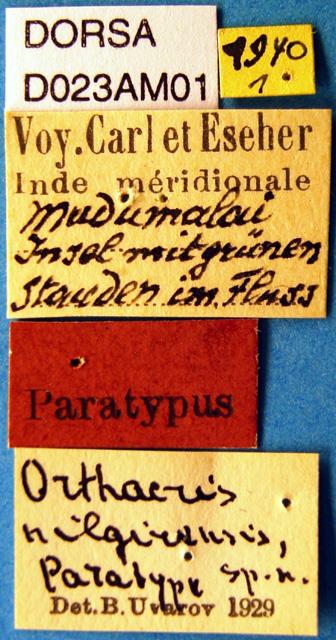 DORSA
D023AM01
1940
1.
Voy. Carl et Escher
Inde méridionale
Mudumalai
Insel mit grünen
Stauden im Fluss
Paratypus
Orthacris
nilgirensis,
Paratype sp. n.
Det. B. Uvarov 1929